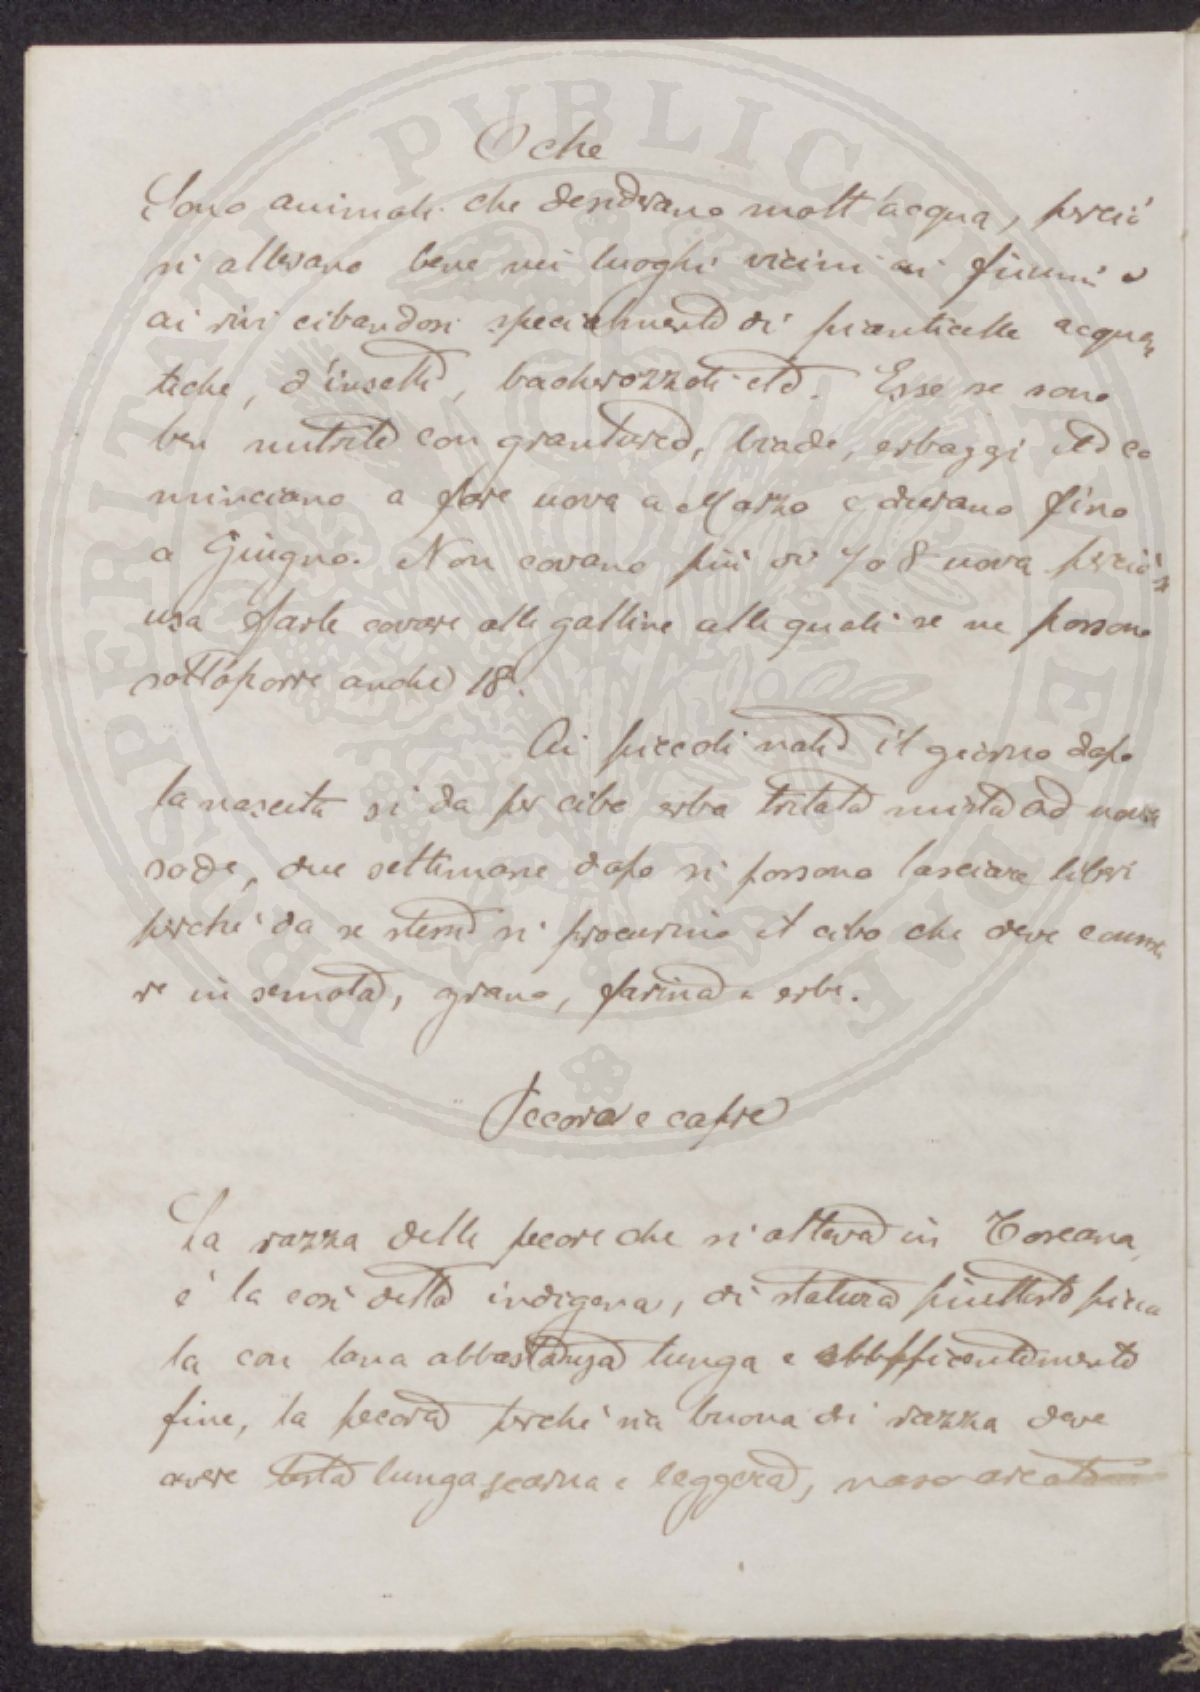 Oche
Sono animali che desiderano molt'acqua, perciò
si allevano bene nei luoghi vicini ai fiumi e
ai rivi cibandosi specialmente di pianticelle acqua
tiche, d'insetti, bacherozzoli etc. Esse se sono
ben nutrite con granturco, biade, erbaggi etc co
minciano a fare uova a Marzo e durano fino
a Giugno. Non covano più di 7 o 8 uova perciò si
usa farle covare alle galline alle quali se ne possono
sottoporre anche 18.
Ai piccoli nati il giorno dopo
la nascita si da per cibo erba tritata mista ad uova
sode, due settimane dopo si possono lasciare liberi
perchè da se stessi si procurino il cibo che deve consiste
re in semola, grano, farina e erbe.
Pecore e capre
La razza delle pecore che si alleva in Toscana,
è la così detta indigena, di statura piuttosto picco
la con lana abbastanza lunga e sufficientemente
fine, la pecora perchè sia buona di razza deve
avere testa lunga scarna e leggera, naso arcato
BRITATI PUBLICAE
PROSPERITATI AUGENDAE